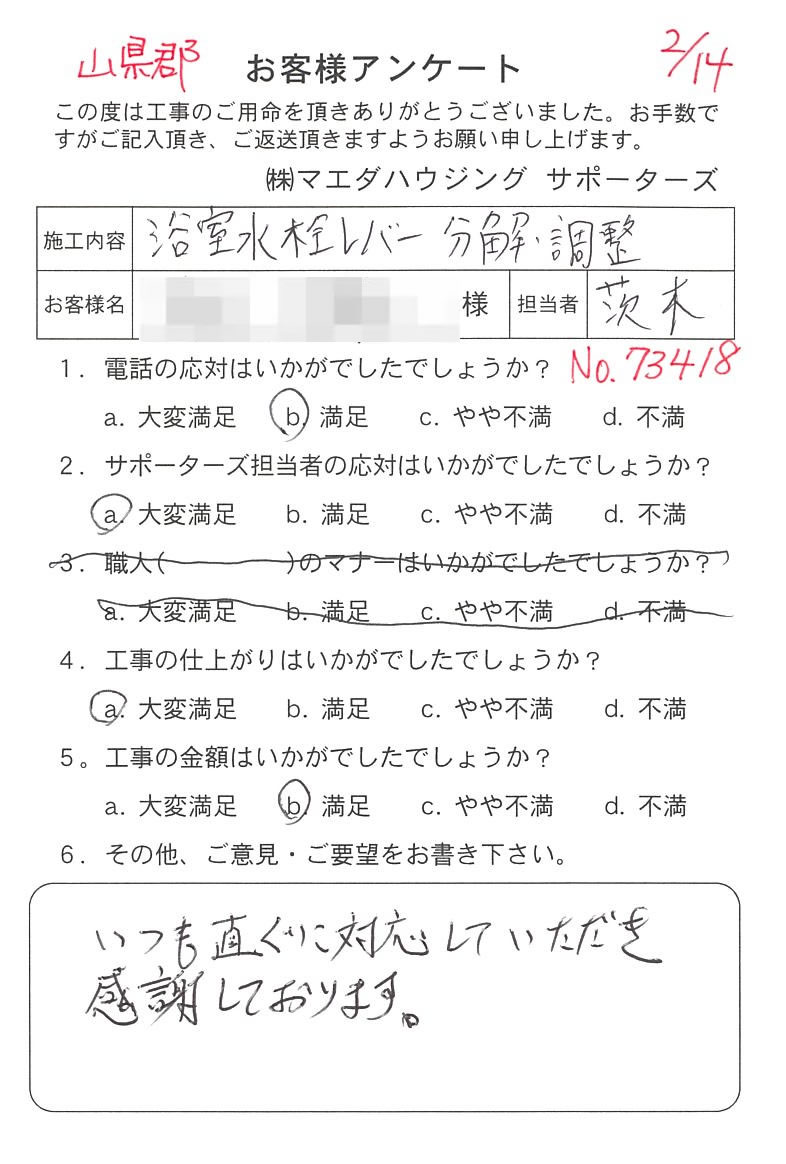 山県郡 お客様アンケート 2/14
この度は工事のご用命を頂きありがとうございました。お手数で
すがご記入頂き、ご返送頂きますようお願い申し上げます。
㈱マエダハウジング サポーターズ
施工内容 浴室水栓レバー分解・調整
お客様名 様 担当者 茨木
1. 電話の応対はいかがでしたでしょうか？ No.73418
a. 大変満足 b. 満足 c. やや不満 d. 不満
2. サポーターズ担当者の応対はいかがでしたでしょうか？
a. 大変満足 b. 満足 c. やや不満 d. 不満
3. 職人( )のマナーはいかがでしたでしょうか？
a. 大変満足 b. 満足 c. やや不満 d. 不満
4. 工事の仕上がりはいかがでしたでしょうか？
a. 大変満足 b. 満足 c. やや不満 d. 不満
5。工事の金額はいかがでしたでしょうか？
a. 大変満足 b. 満足 c. やや不満 d. 不満
6. その他、ご意見・ご要望をお書き下さい。
いつも直ぐに対応していただき
感謝しております。